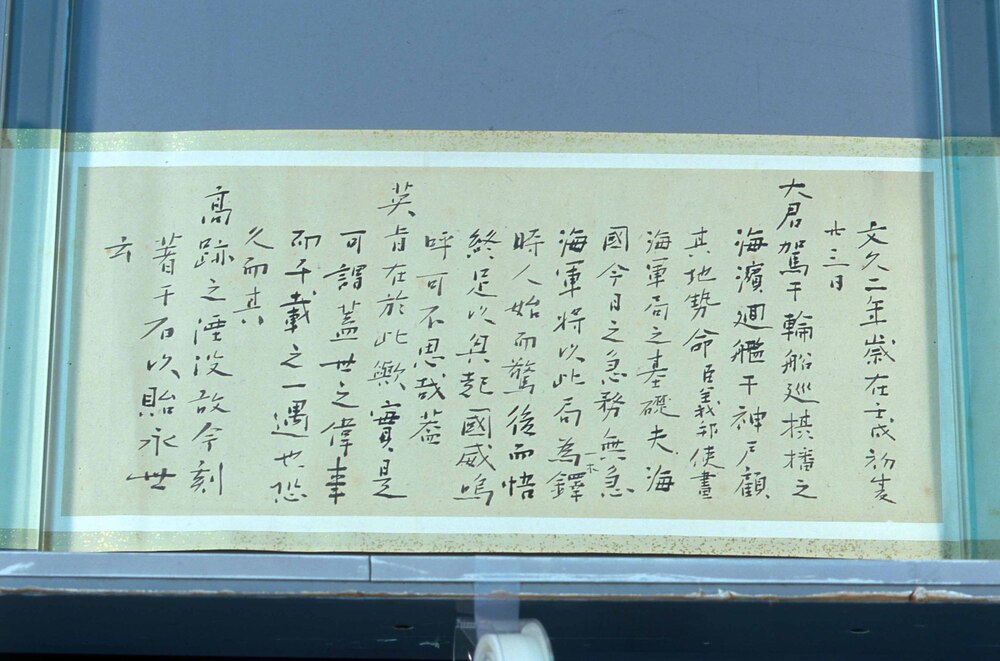 文久二年歳在壬戌初夏
廿三日
大君駕于輪船巡摂播之
海濱廻艦于神戸顧
其地勢命臣義邦使畫
海軍局之基礎夫海
國今日之急務無急
海軍将以此局為鐸
時人始而驚後而悟
終足以興起國威嗚
呼可不思哉蓋
英旨在於此歟實是
可謂蓋世之偉事
而千載之一遇也恐
久而其
高跡之湮没故今刻
著于石以貽永世
云